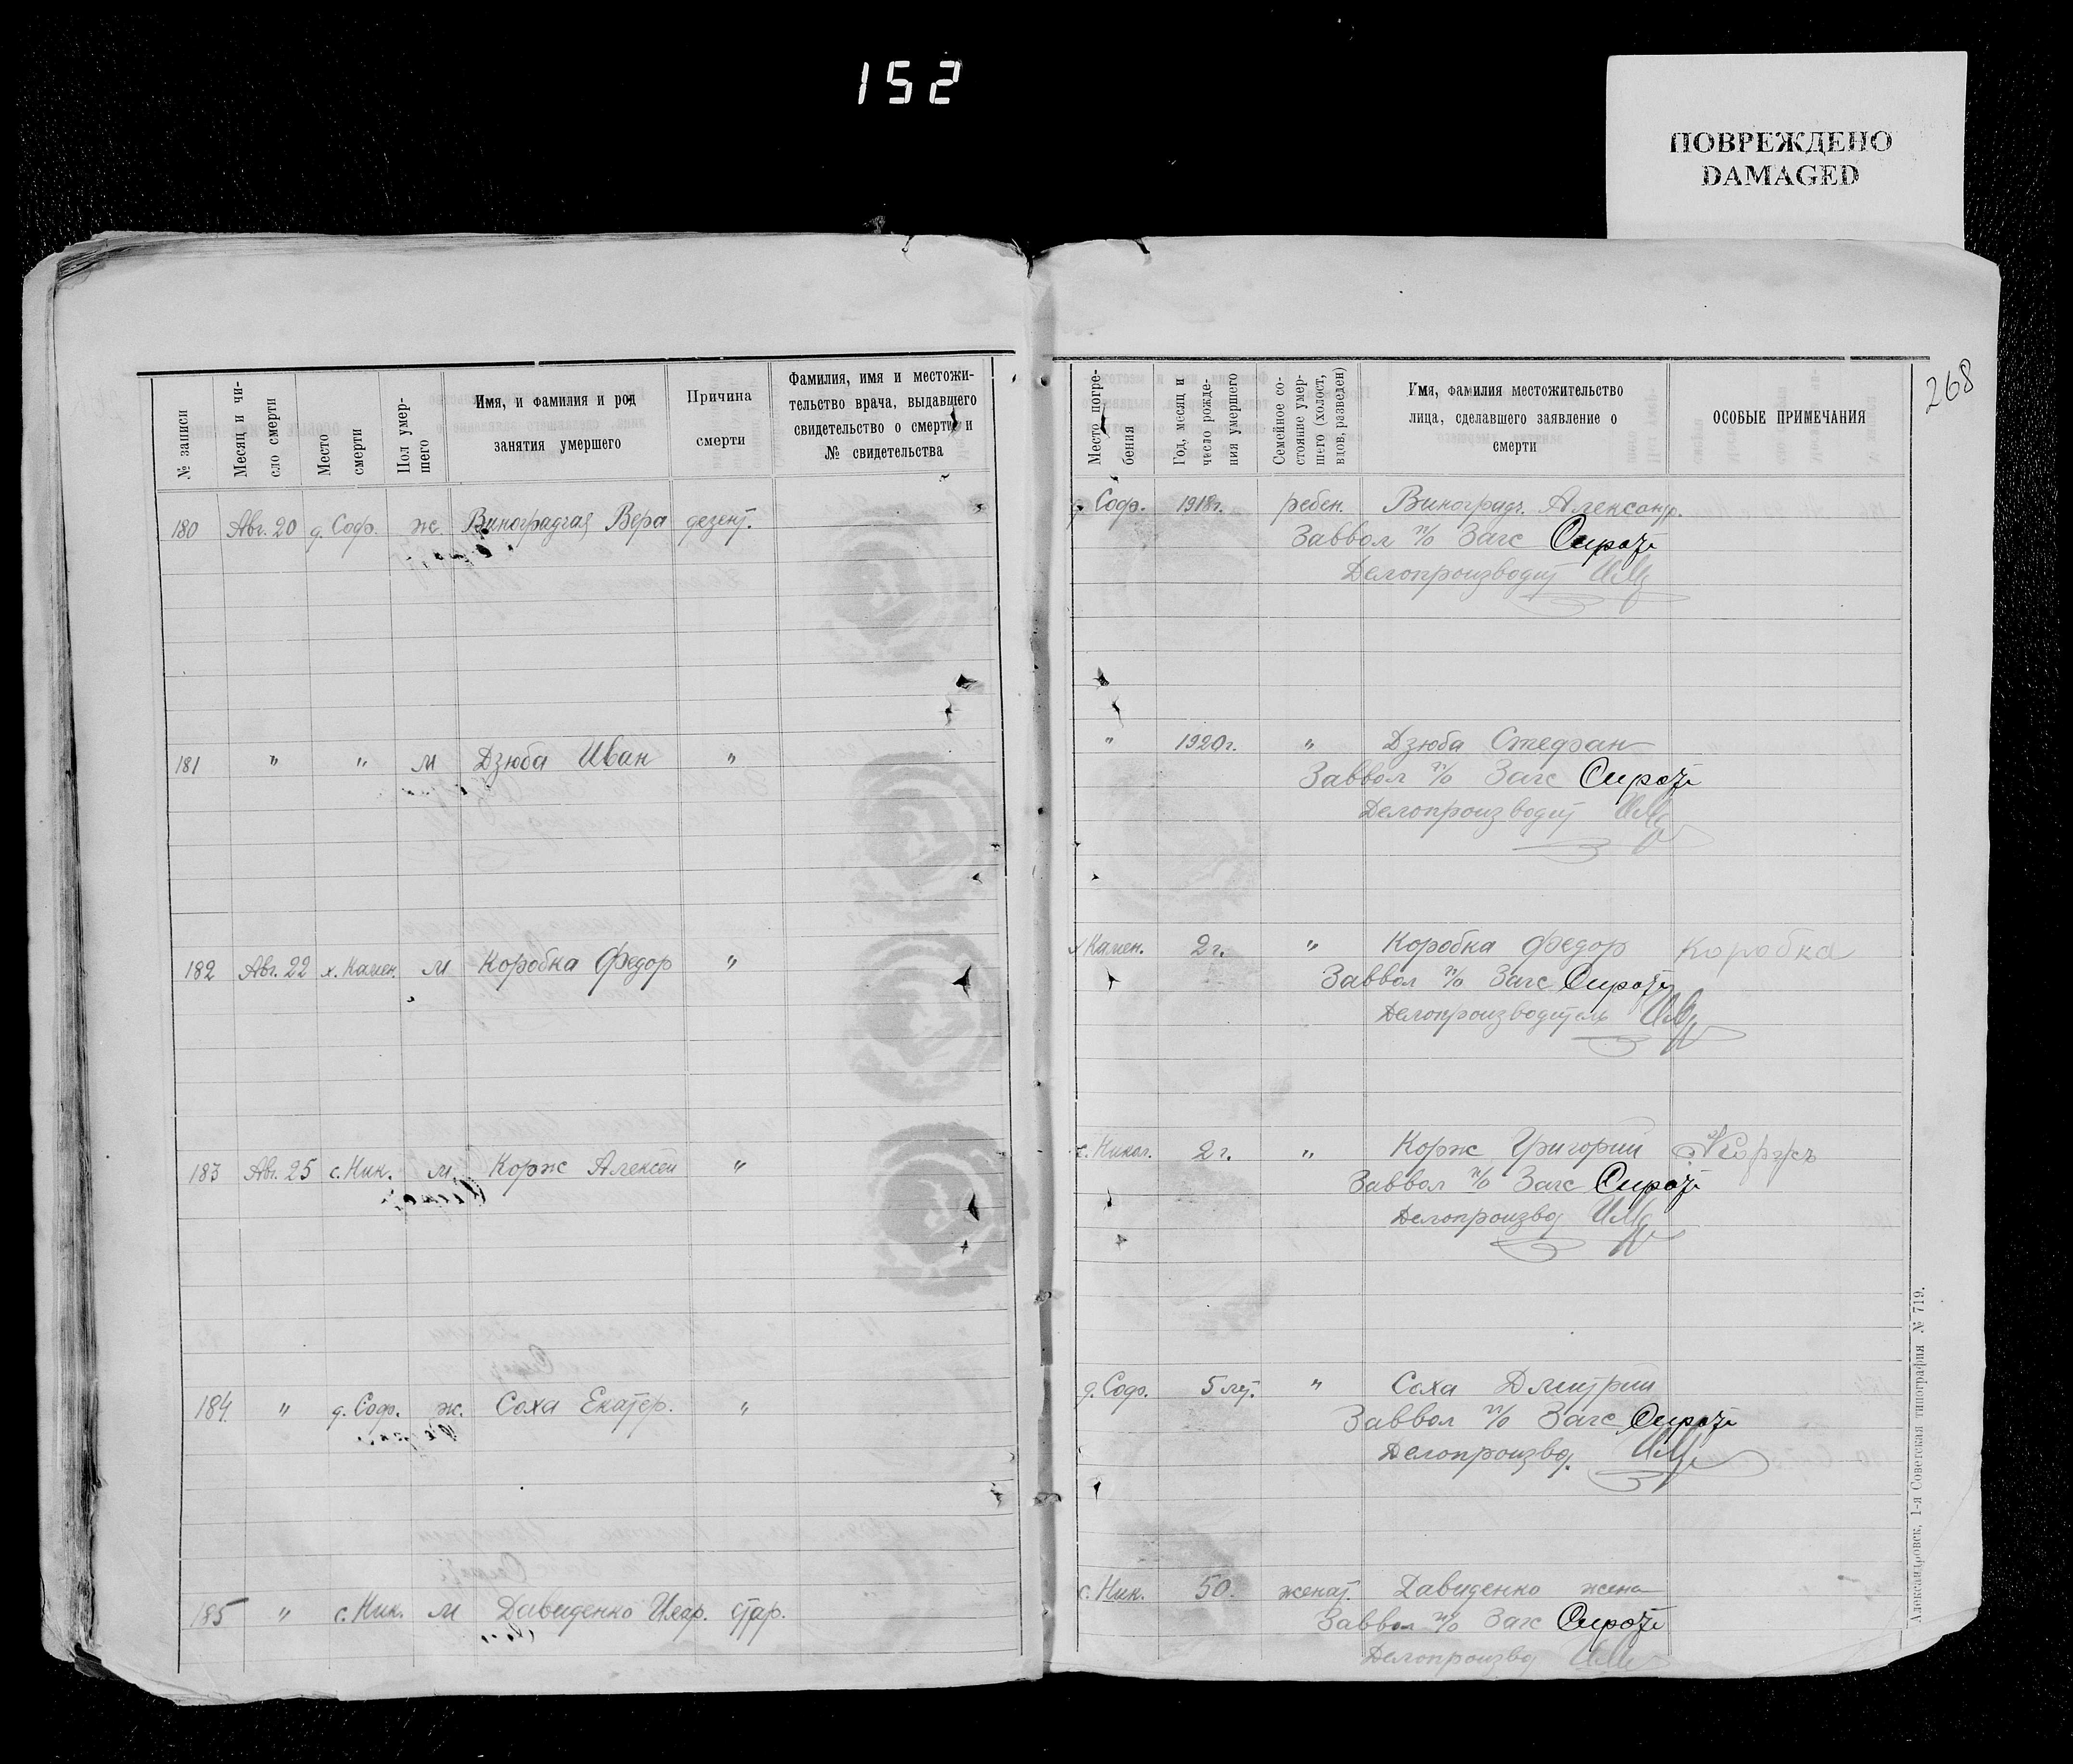 152
ПОВРЕЖДЕНО
DAMAGED
268
№ записи
Месяц и чи-
сло смерти
Место
смерти
Пол умер-
шего
Имя, и фамилия и род
занятия умершего
Причина
смерти
Фамилия, имя и местожи-
тельство врача, выдавшего
свидетельство о смерти и
№ свидетельства
Место погре-
бения
Год, месяц и
число рожде-
ния умершего
Семейное со-
стояние умер-
шего (холост,
вдов, разведен)
Имя, фамилия местожительство
лица, сделавшего заявление о
смерти
ОСОБЫЕ ПРИМЕЧАНИЯ
180 Авг. 20 д. Соф. ж. Вера дезент.
д. Соф. 1918г. ребен. Виноградч. Александр.
Заввол п/о Загс
Делопроизводит
181 " " м Дзюба Иван "
" 1920г. " Дзюба Стефан
Заввол п/о Загс
Делопроизводит
182 Авг. 22 х. Камен. м Коробка Федор "
х Камен. 2г. " Коробка Федор Коробка
Заввол п/о Загс
Делопроизводитель
183 Авг. 25 с. Ник. м. Корж Алексей "
с. Никол. 2г. " Корж Григорий
Заввол п/о Загс
Делопроизвод
184 " д. Соф. ж. Соха Екатер. "
д. Соф. 5 лет. " Соха Дмитрий
Заввол п/о Загс
Делопроизвод.
185 " с. Ник. м Давиденко Илар. стар.
с. Ник. 50. женат. Давиденко жена
Заввол п/о Загс
Делопроизвод
Александровск, 1-я Советская типография № 719.